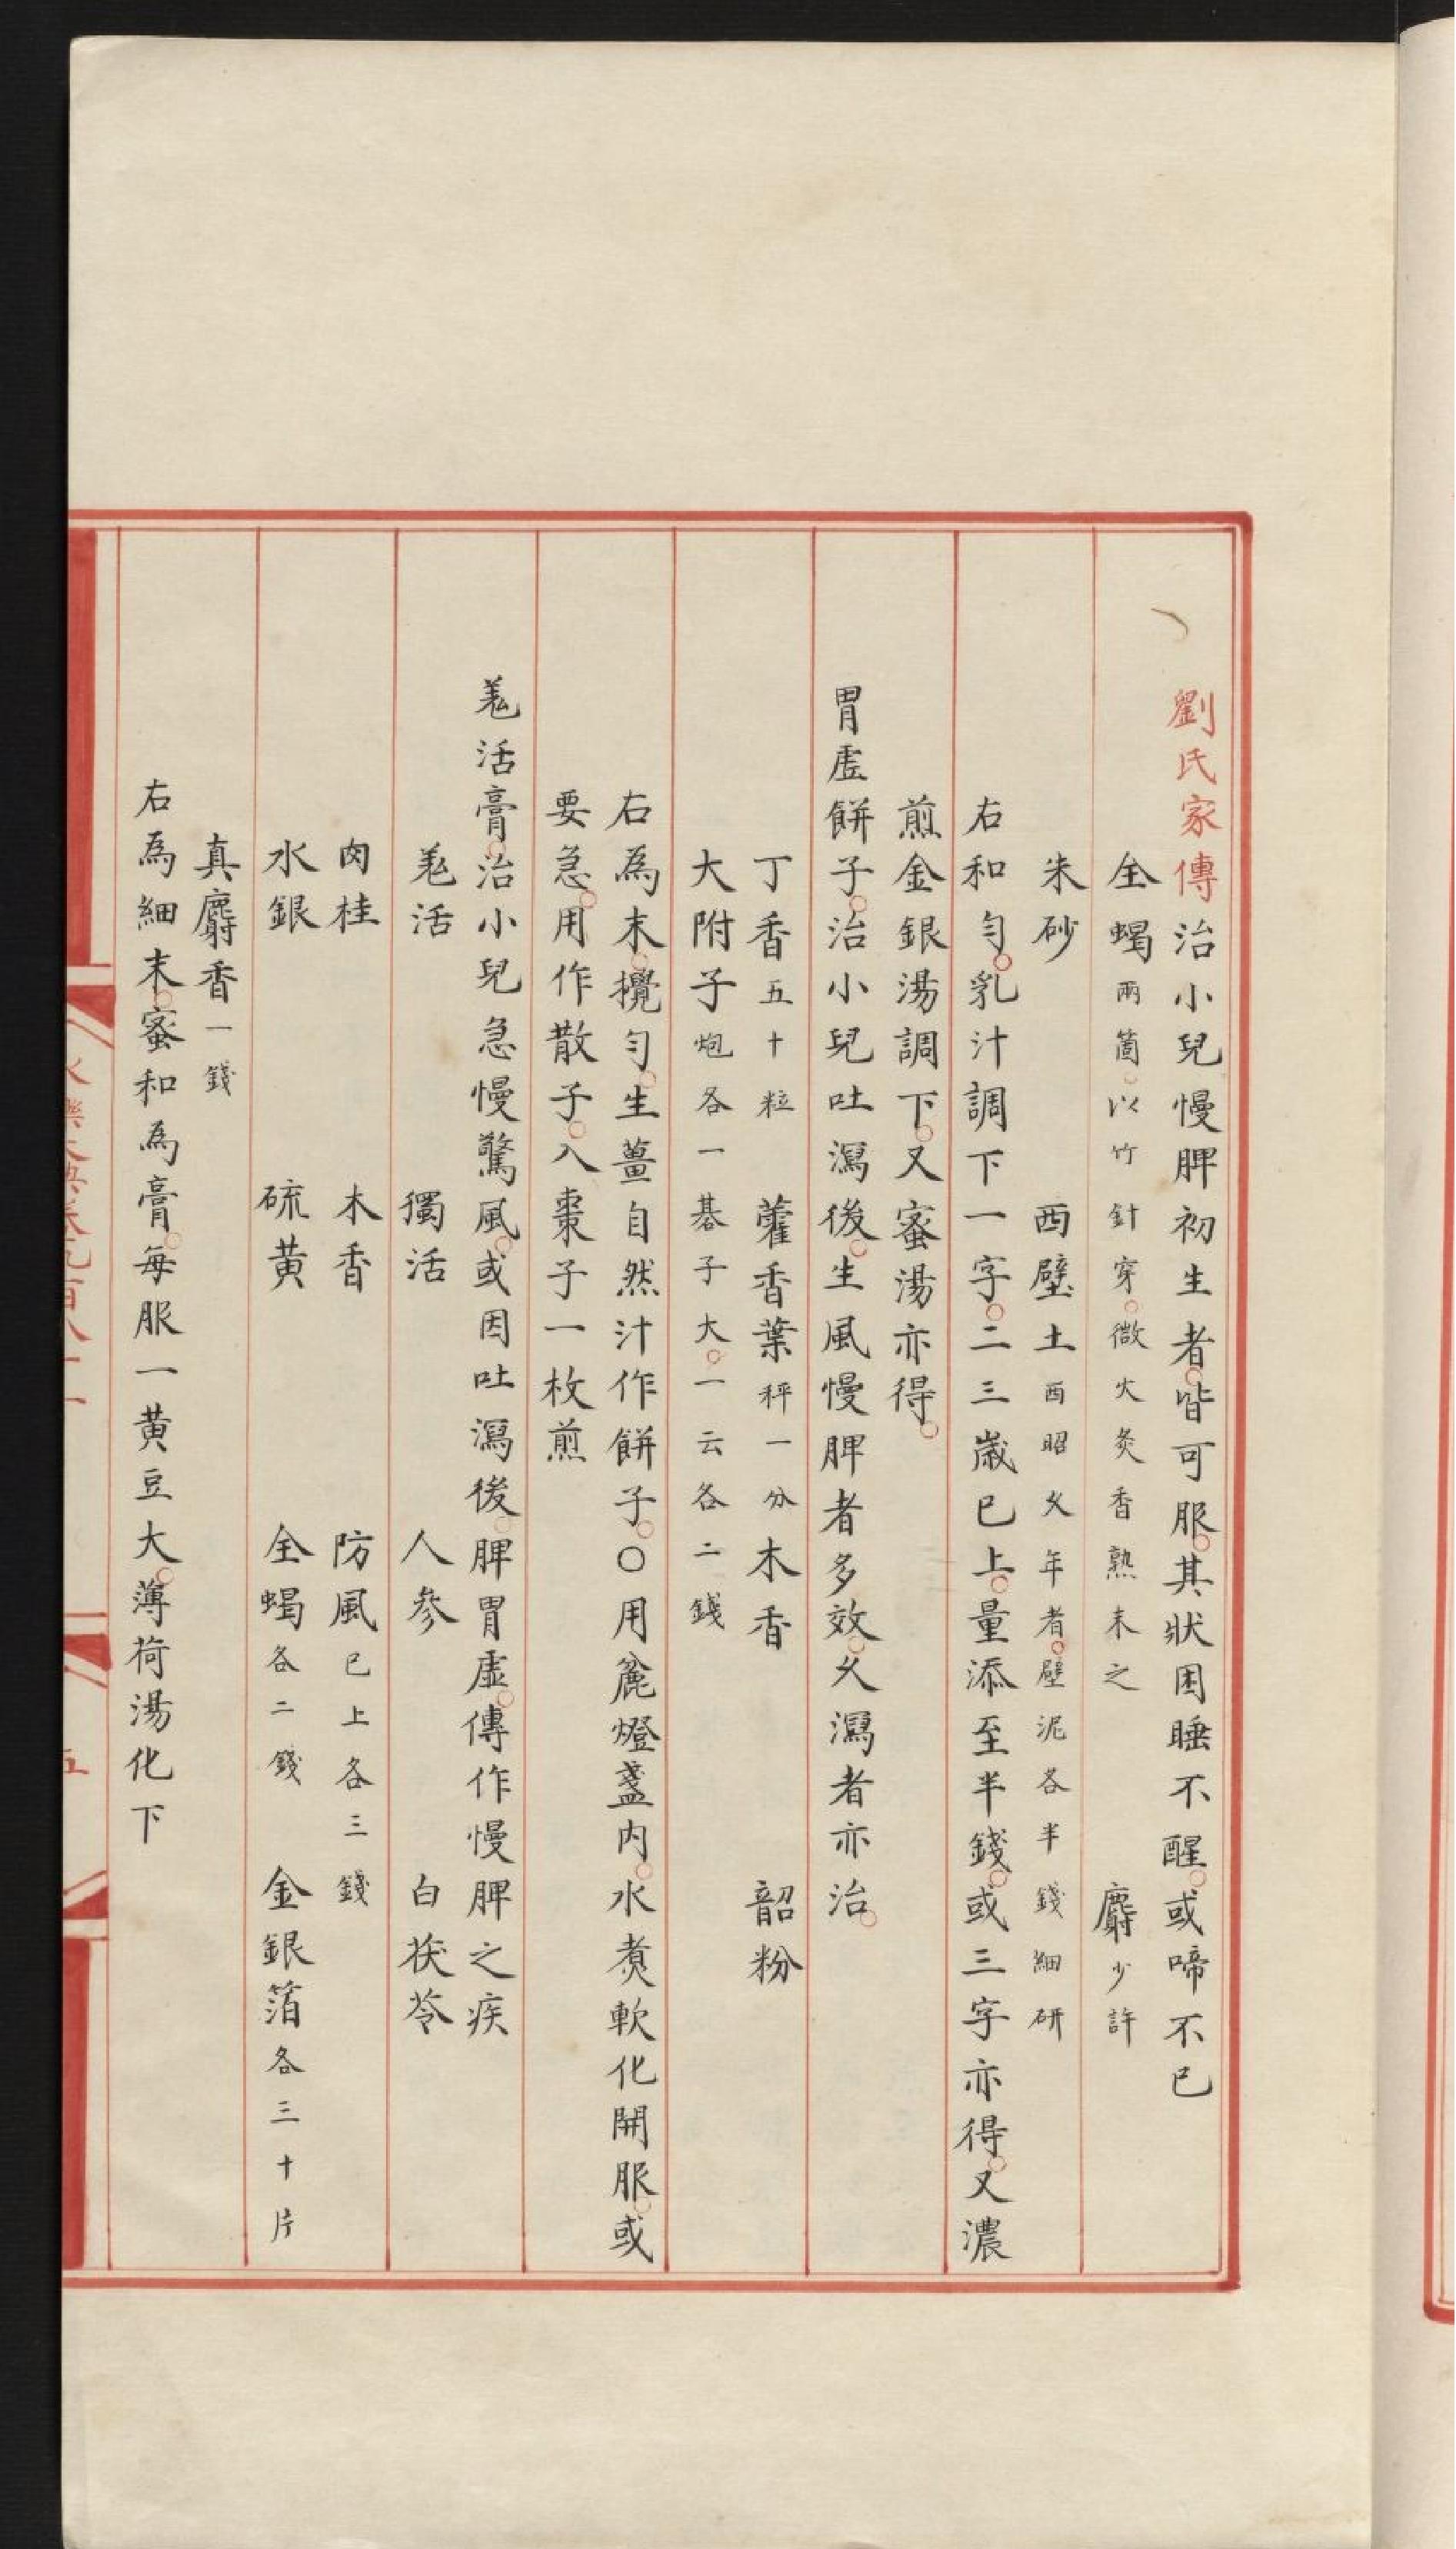 劉氏家傳治小兒慢脾初生者皆可服其狀困睡不醒或啼不已
全蝎兩箇以竹針穿微火炙香熟末之 麝少許
朱砂 西壁土酉昭久年者壁泥各半錢細研
右和勻乳汁調下一字二三歲已上量添至半錢或三字亦得又濃
煎金銀湯調下又蜜湯亦得
胃虛餅子治小兒吐瀉後生風慢脾者多效久瀉者亦治
丁香五十粒 藿香葉秤一分 木香 韶粉
大附子炮各一碁子大一云各二錢
右為末攪勻生薑自然汁作餅子〇用麄燈盞內水煑軟化開服或
要急用作散子入棗子一枚煎
羗活膏治小兒急慢驚風或因吐瀉後脾胃虛傳作慢脾之疾
羗活 獨活 人參 白茯苓
肉桂 木香 防風已上各三錢
水銀 硫黃 全蝎各二錢 金銀箔各三十片
真麝香一錢
右為細末蜜和為膏每服一黃豆大薄荷湯化下
五